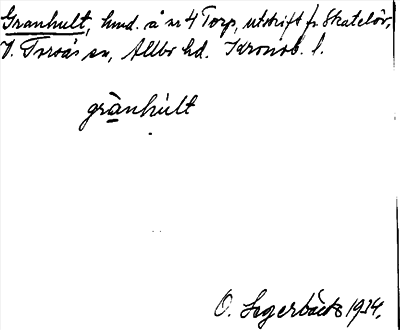 Granhult, hmd. å nr 4 Torp, utskift fr. Skatelöv,
V. Torsås sn, Allbo hd. Kronob. l.
grànhùlt
O. Segerbäck 1934.